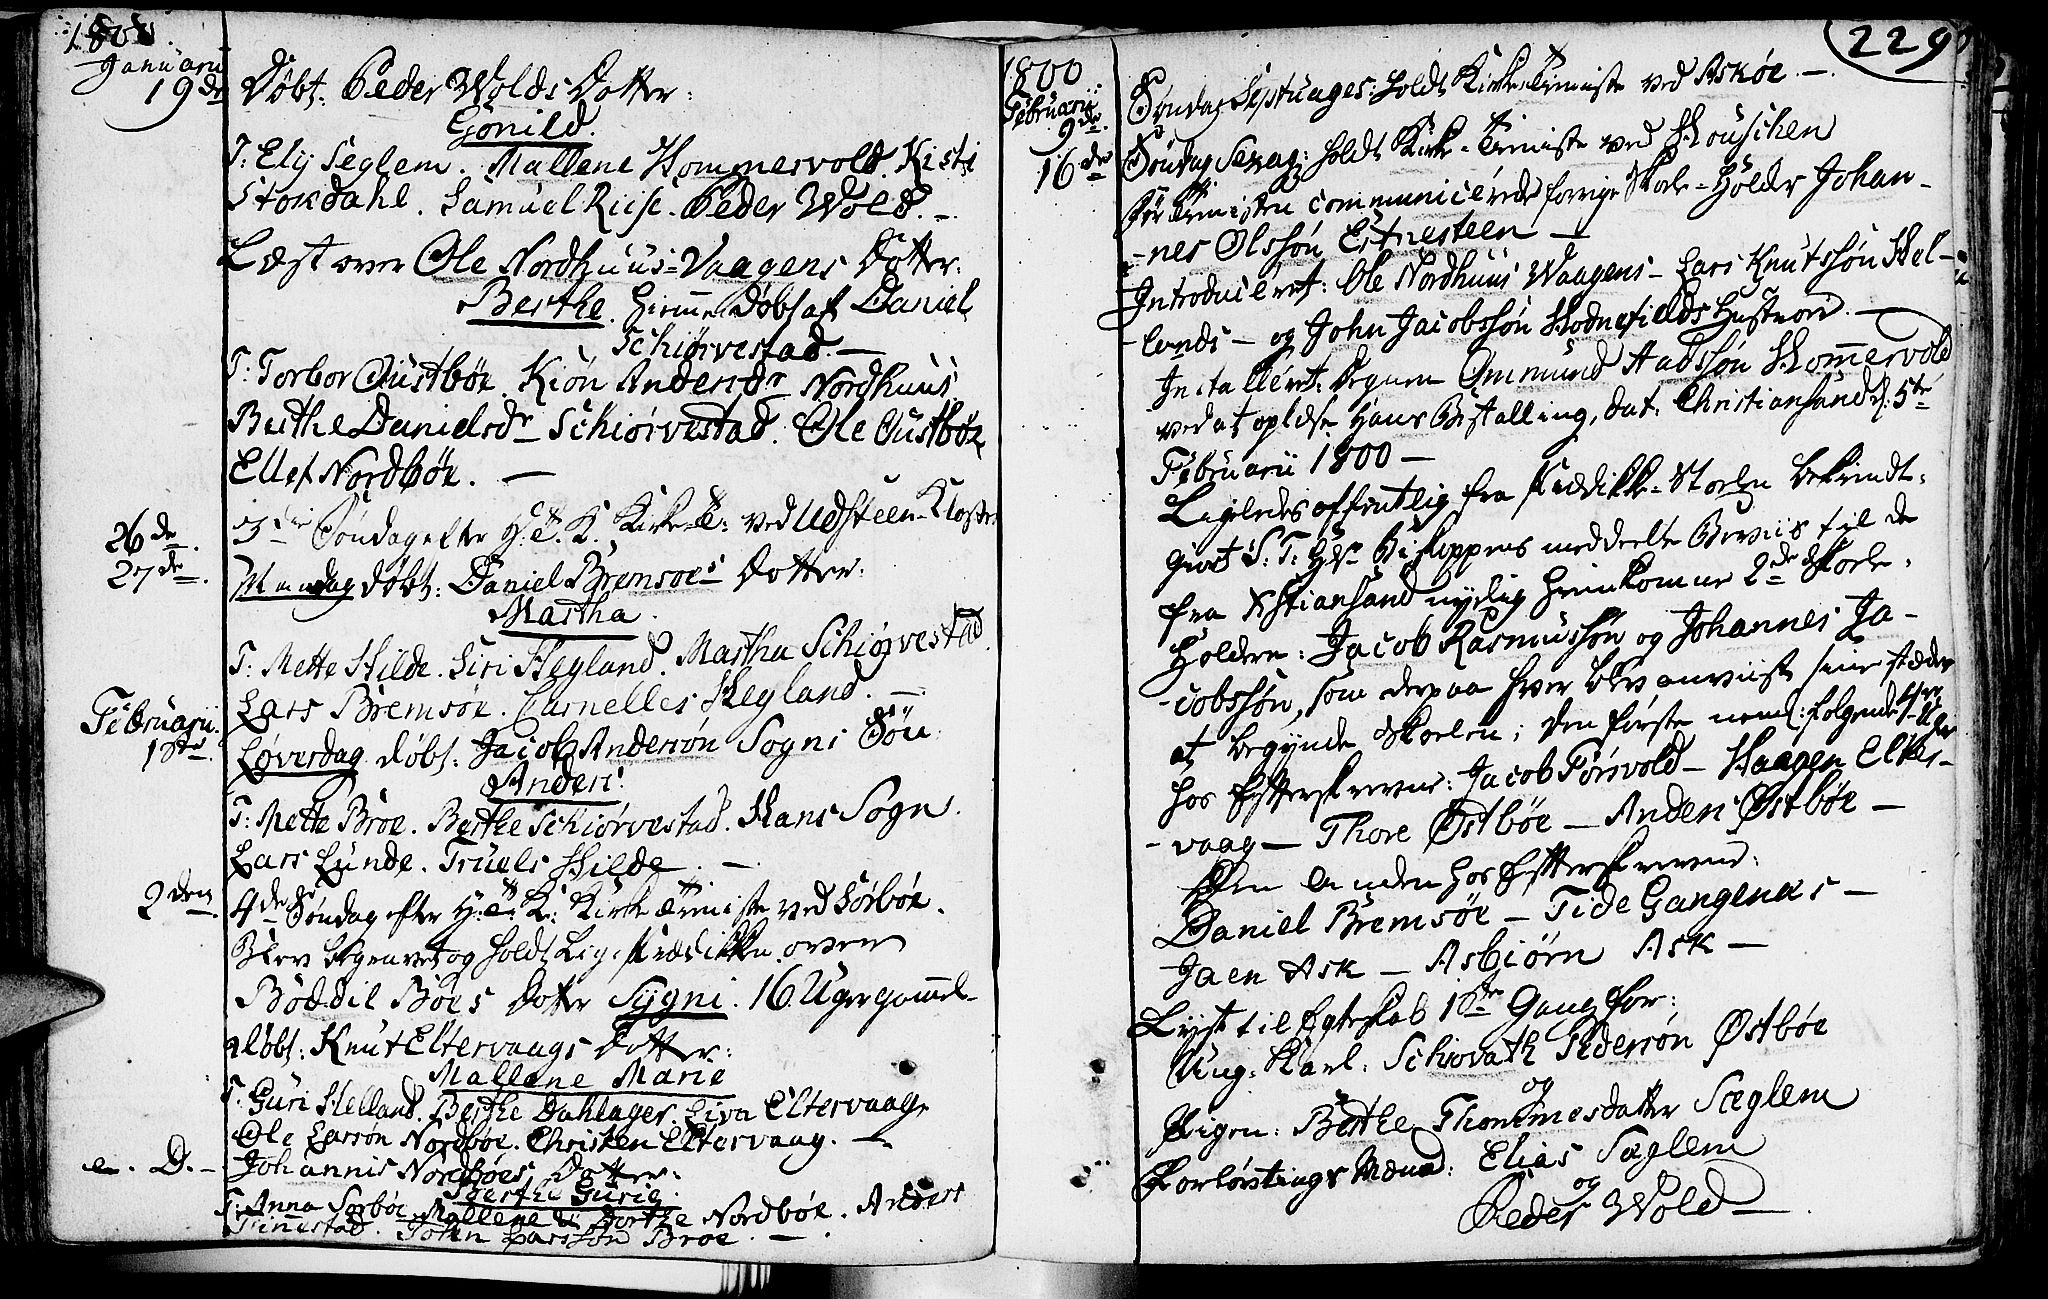 1800
Januarii
19de Døbt: Peder Wolds Dotter:
Gonild.
T: Elij Seglem. Mallene Hommersvold. Kisti
Stoksdahl. Samuel Riise. Peder Wold. –
Læst over Ole Nordhuus-Vaagens Dotter:
Berthe. hiemme døbt af Daniel
Schiørvestad. –
T: Torbor Oustbøe. Kiøn Andersdr Nordhuus.
Berthe Danielsdr Schiørvestad. Ole Oustbøe
Ellef Nordbøe. –
26de 3die Søndag efter H. 3 K. Kirke-T: ved Udsteen-Kloster
27de Mandag døbt: Daniel Bremsøes Dotter:
Martha.
T: Mette Hilde. Siri Hegland. Martha Schiørvestad.
Lars Bremsøe. Carnelles Hegland. –
Februarii
1ste Løverdag døbt: Jacob Andersøn Sogns Søn:
Anders.
T: Mette Broe. Berthe Schiørvestad. Hans Sogn.
Lars Lunde. Truels Hilde. –
2den 4de Søndag efter H: 3 K: Kirke Tieniste ved Sørbøe.
Blev begravet og holdt Lig-Prædikken over
Boddil Bøes Dotter Sygni. 16 Uger gammel
døbt: Knut Eltervaags Dotter:
Mallene Marie
T: Guri Helland. Berthe Dahlager. Siva Eltervaag.
Ole Larsøn Nordboe. Christen Eltervaag. –
e. D. – Johannis Nordbøes Dotter:
Berthe Gurie.
T: Anna Sorbøe. Mallene & Dorthe Nordbøe. Anders
Finestad. John Larssøn Broe. –
229
1800
Februarii
9de Søndag Septuages: holdt Kirke-Tieniste ved Askøe. –
16de Søndag Sexag: holdt Kirke-Tieniste ved Houschen
Før Tienisten communicerede forrige Skole-Holder Johan-
-nes Olssøn Estnesteen –
Introduceret: Ole Nordhuus Waagens – Lars Knutssøn Hel-
-lands – og John Jacobssøn Hodnefields Hustruer. –
Installeret: Degnen Ommund Aadssøn Hommersvold
ved at oplæse hans Bestalling, dat: Christiansand d: 5te
Februarii 1800 –
Ligeledes offentlig fra Prædikke-Stolen bekiendt-
giort S: T: Hr Biskoppens meddeelte Beviis til de
fra Xstiansand nylig hiemkomne 2de Skole-
Holdere: Jacob Rasmussøn og Johannes Ja-
-cobssøn, som derpaa hver blev anviist siine stæder
at begynde Skolen; den første neml: følgende 4re Uger
hos Efterskrevne: Jacob Førsvold – Haagen Elter-
-vaag – Thore Østbøe – Anders Østbøe –
Den anden hos Efterskrevne:
Daniel Bremsøe – Tide Gangenæs –
Jaen Ask – Asbiørn Ask –
Lyst til Egteskab 1ste Gang for:
Ung-Karl: Schiovath Pedersøn Østbøe
og
Pigen: Berthe Thommesdatter Sæglem
Forlovings Mænd: Elias Sæglem
og
Peder Wold –